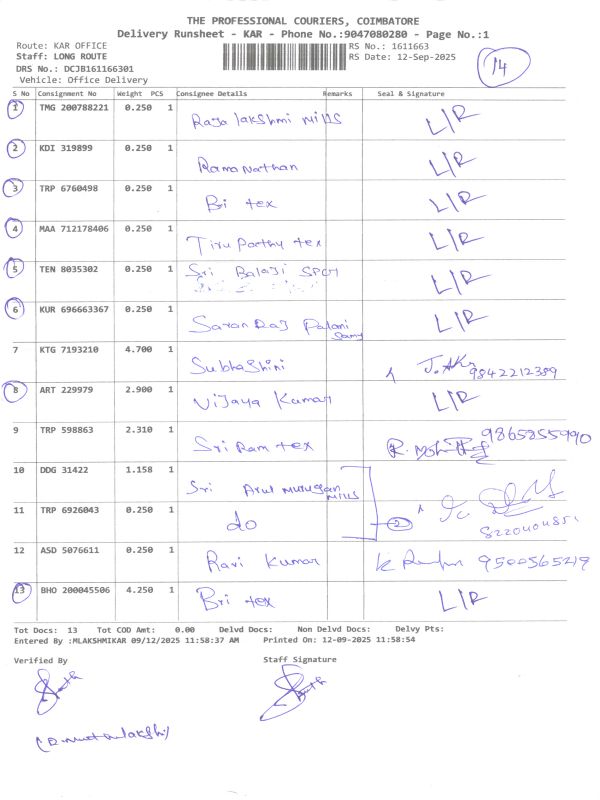 THE PROFESSIONAL COURIERS, COIMBATORE
Delivery Runsheet - KAR - Phone No.:9047080280 - Page No.:1
Route: KAR OFFICE RS No.: 1611663
Staff: LONG ROUTE RS Date: 12-Sep-2025
DRS No.: DCJB161166301
Vehicle: Office Delivery
14
S No Consignment No Weight PCS Consignee Details Remarks Seal & Signature
1 TMG 200788221 0.250 1 Rajalakshmi mills L/R
2 KDI 319899 0.250 1 Ramanathan L/R
3 TRP 6760498 0.250 1 Bri tex L/R
4 MAA 712178406 0.250 1 Tirupathy tex L/R
5 TEN 8035302 0.250 1 Sri Balaji L/R
6 KUR 696663367 0.250 1 Saran Raj Palani Samy L/R
7 KTG 7193210 4.700 1 Subhashini 9842212389
8 ART 229979 2.900 1 Vijaya Kumar L/R
9 TRP 598863 2.310 1 Sri Ram tex 9865255990
10 DDG 31422 1.158 1 Sri Arul Murugan Mills
11 TRP 6926043 0.250 1 do 2
12 ASD 5076611 0.250 1 Ravi Kumar 9500565219
13 BHO 200045506 4.250 1 Bri tex L/R
Tot Docs: 13 Tot COD Amt: 0.00 Delvd Docs: Non Delvd Docs: Delvy Pts:
Entered By :MLAKSHMIKAR 09/12/2025 11:58:37 AM Printed On: 12-09-2025 11:58:54
Verified By Staff Signature